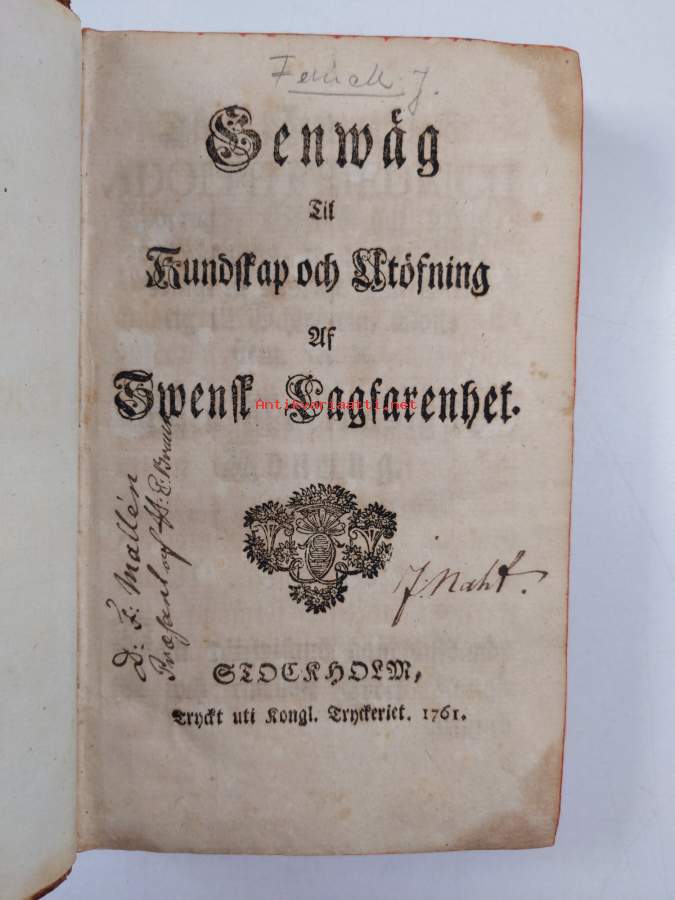 J.
Genwäg
Til
Kundskap och Utöfning
Af
Swensk Lagfarenhet.
Antikvariaatti.net
D: F: Mallén
Præsent af H: E. Braun
J. Naht.
STOCKHOLM,
Tryckt uti Kongl. Tryckeriet. 1761.